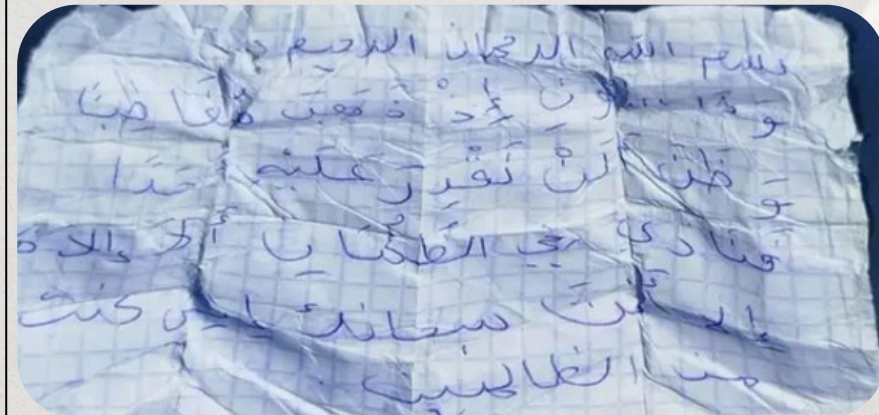 بسم الله الرحمان الرحيم
وَذَا النون إِذْ ذَهَبَ مُغَاضِبًا
وَظَنَّ أَنْ لَنْ نَقْدِرَ عَلَيْهِ أَحَدًا
فَنَادَى في الظُّلُمَاتِ أَلَّا إلاه
إلا أَنْتَ سبحانك إني كنت
من الظالمين